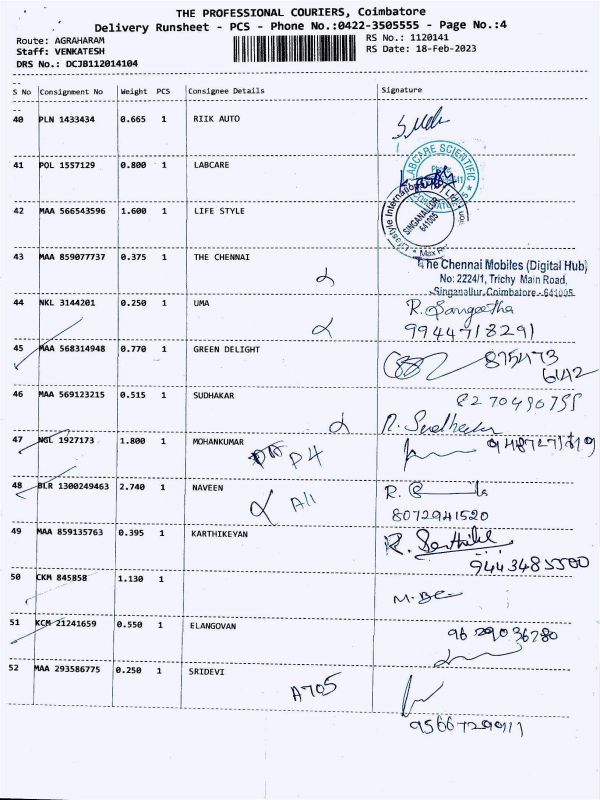 THE PROFESSIONAL COURIERS, Coimbatore
Delivery Runsheet - PCS - Phone No.:0422-3505555 - Page No.:4
Route: AGRAHARAM
RS No.: 1120141
Staff: VENKATESH
RS Date: 18-Feb-2023
DRS No.: DCJB112014104
S No Consignment No Weight PCS Consignee Details Signature
40 PLN 1433434 0.665 1 RIIK AUTO
41 POL 1557129 0.800 1 LABCARE
LABCARE SCIENTIFIC
42 MAA 566543596 1.600 1 LIFE STYLE
SINGANALLUR
641005
43 MAA 859077737 0.375 1 THE CHENNAI
The Chennai Mobiles (Digital Hub)
No: 2224/1, Trichy Main Road,
Singanallur, Coimbatore - 641005
44 NKL 3144201 0.250 1 UMA
R. Sangeetha
9944718291
45 MAA 568314948 0.770 1 GREEN DELIGHT
46 MAA 569123215 0.515 1 SUDHAKAR
47 NGL 1927173 1.800 1 MOHANKUMAR
P4
48 BLR 1300249463 2.740 1 NAVEEN
A11
8072941520
49 MAA 859135763 0.395 1 KARTHIKEYAN
9443485500
50 CKM 845858 1.130 1
51 KCM 21241659 0.550 1 ELANGOVAN
9629036780
52 MAA 293586775 0.250 1 SRIDEVI
A705